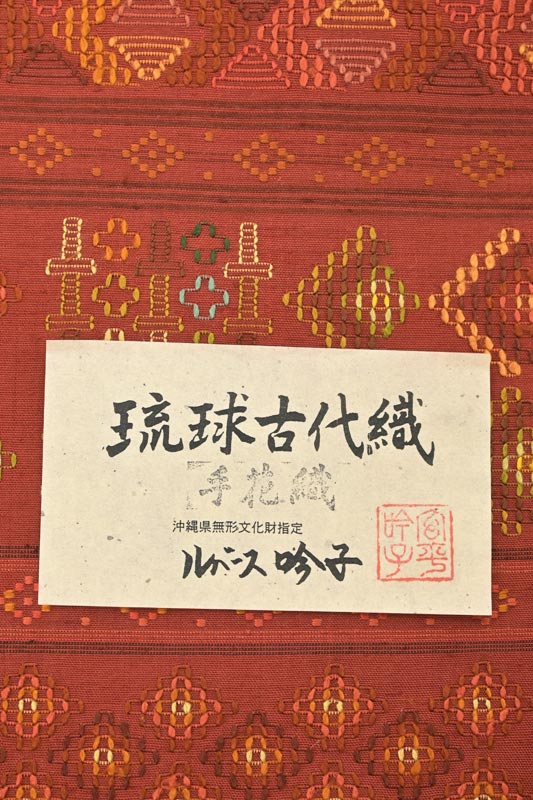 琉球古代織
手花織
沖縄県無形文化財指定
ルバース吟子
宮平
吟子